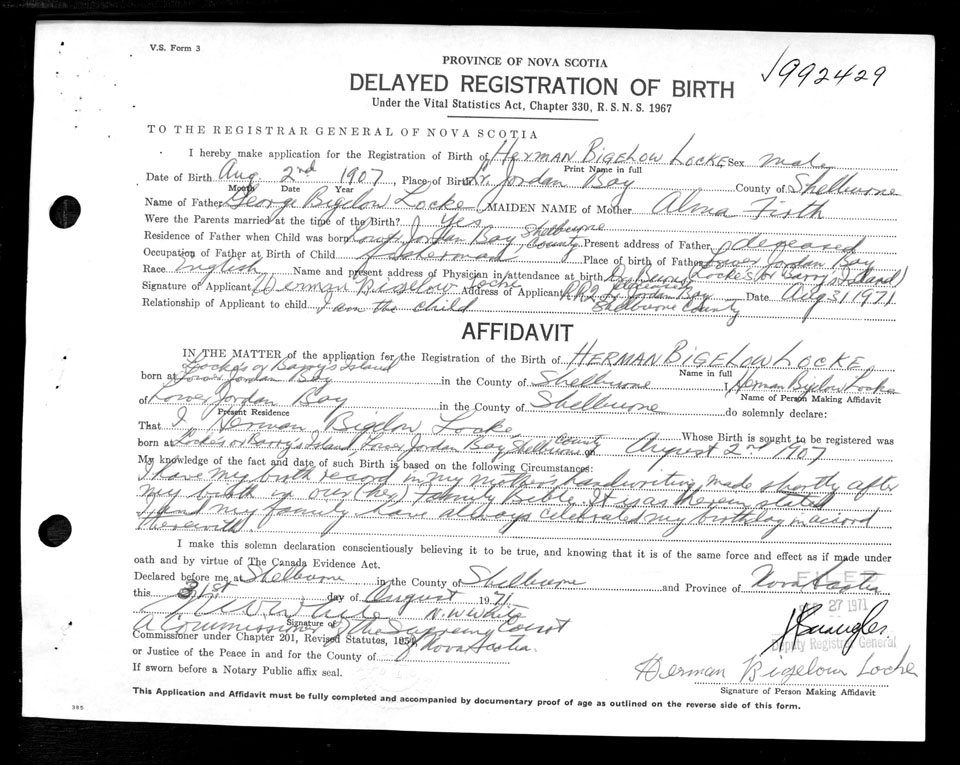 V.S. Form 3
PROVINCE OF NOVA SCOTIA
1992429
DELAYED REGISTRATION OF BIRTH
Under the Vital Statistics Act, Chapter 330, R.S.N.S. 1967
TO THE REGISTRAR GENERAL OF NOVA SCOTIA
I hereby make application for the Registration of Birth of HERMAN BIGELOW LOCKE Sex male
Print Name in full
Date of Birth Aug 2nd 1907, Place of Birth Lr. Jordan Bay County of Shelburne
Month Date Year
Name of Father George Bigelow Locke MAIDEN NAME of Mother Alma Firth
Were the Parents married at the time of the Birth? Yes
Residence of Father when Child was born Lower Jordan Bay Shelburne County Present address of Father deceased
Occupation of Father at Birth of Child fisherman Place of birth of Father Lower Jordan Bay
Race English Name and present address of Physician in attendance at birth Dr. Locke's (or Barry's Island)
Signature of Applicant Herman Bigelow Locke Address of Applicant R.R.2 Lr. Jordan Bay Date Aug 31 1971
Shelburne County
Relationship of Applicant to child I am the child
AFFIDAVIT
IN THE MATTER of the application for the Registration of the Birth of HERMAN BIGELOW LOCKE
Name in full
Locke's or Barry's Island
born at Lower Jordan Bay in the County of Shelburne I, Herman Bigelow Locke
Name of Person Making Affidavit
of Lower Jordan Bay in the County of Shelburne do solemnly declare:
Present Residence
That I, Herman Bigelow Locke Whose Birth is sought to be registered was
born at Locke's or Barry's Island Lower Jordan Bay Shelburne County on August 2nd 1907
My knowledge of the fact and date of such Birth is based on the following Circumstances:
I have my birth record in my mother's handwriting made shortly after
my birth in our (her) Family Bible. It was therein stated
I and my family have always celebrated my birthday in accord
therewith
I make this solemn declaration conscientiously believing it to be true, and knowing that it is of the same force and effect as if made under
oath and by virtue of The Canada Evidence Act.
Declared before me at Shelburne in the County of Shelburne and Province of Nova Scotia
this 31st day of August 1971
FILED
27 1971
N.W. White
Signature of
A Commissioner of the Supreme Court
Commissioner under Chapter 201, Revised Statutes, 1954 of Nova Scotia.
Deputy Registrar General
or Justice of the Peace in and for the County of
Herman Bigelow Locke
If sworn before a Notary Public affix seal.
Signature of Person Making Affidavit
This Application and Affidavit must be fully completed and accompanied by documentary proof of age as outlined on the reverse side of this form.
385